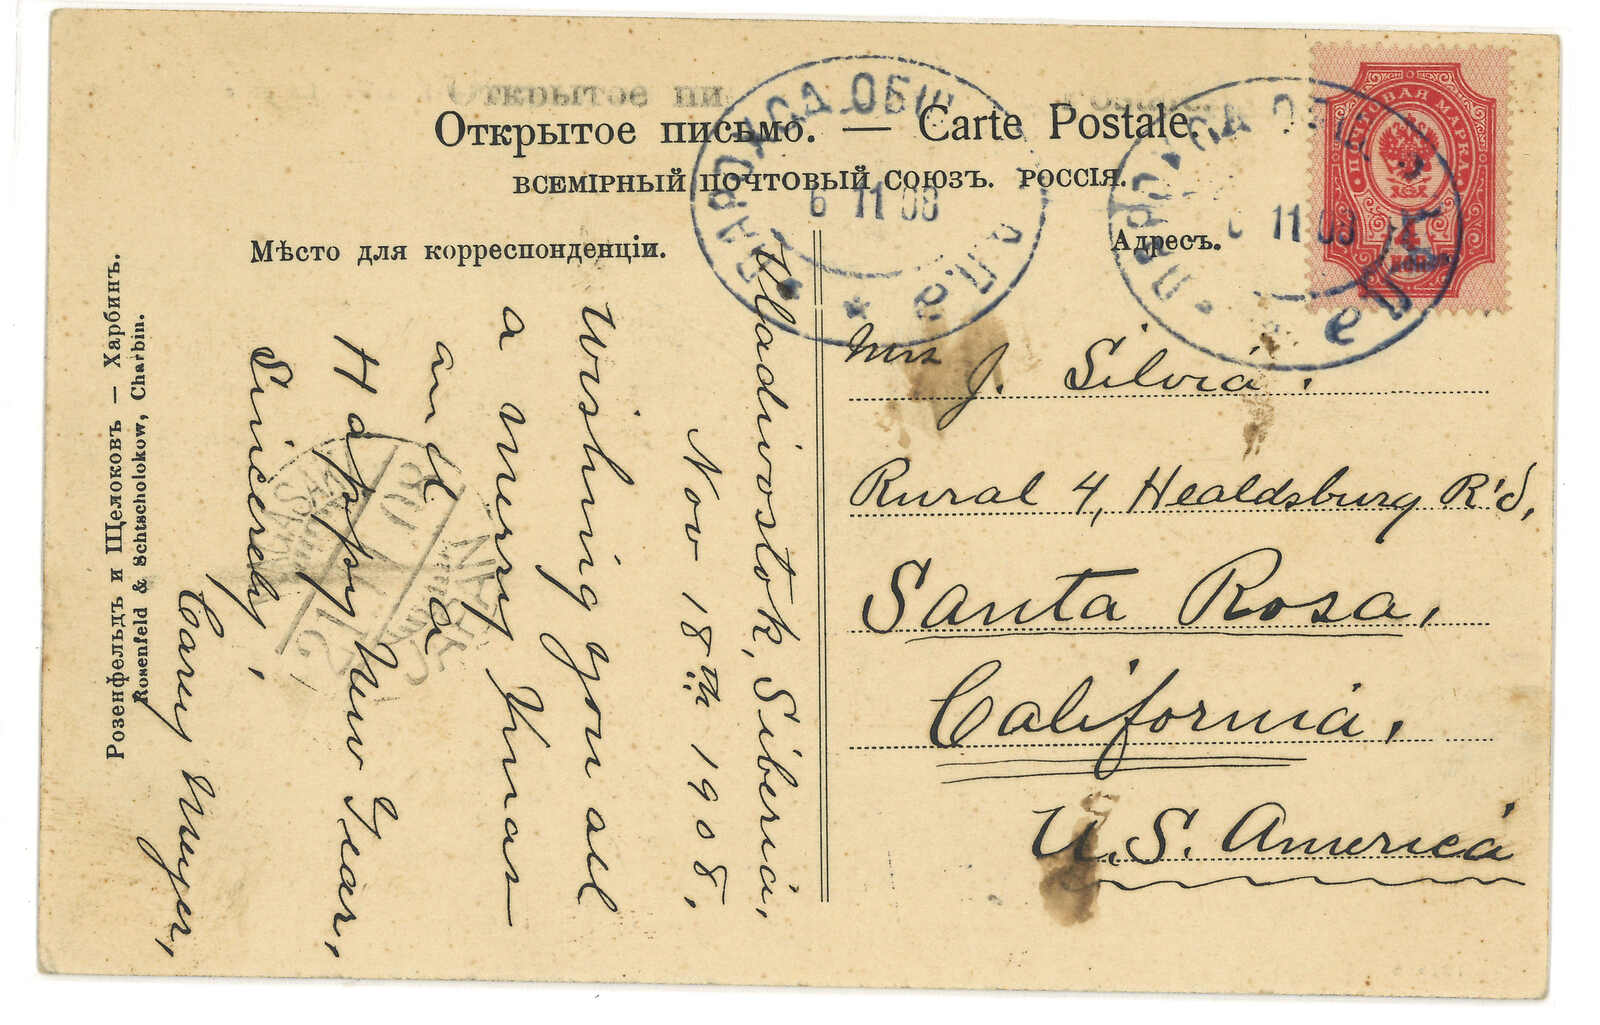 Открытое пи
Открытое письмо. — Carte Postale.
ВСЕМІРНЫЙ ПОЧТОВЫЙ СОЮЗЪ. РОССІЯ.
Мѣсто для корреспонденціи.
Адресъ.
ПОЧТОВАЯ МАРКА
4
6 11 08
11 08
Розенфельдъ и Щелоковъ — Харбинъ.
Rosenfeld & Schtscholokow, Charbin.
Vladivostok, Siberia,
Nov 18th 1908,
Wishing you all
a merry Xmas
and a
Happy New Year,
Sincerely,
Mrs J. Silvia.
Rural 4, Healdsburg R'd,
Santa Rosa,
California,
U.S. America